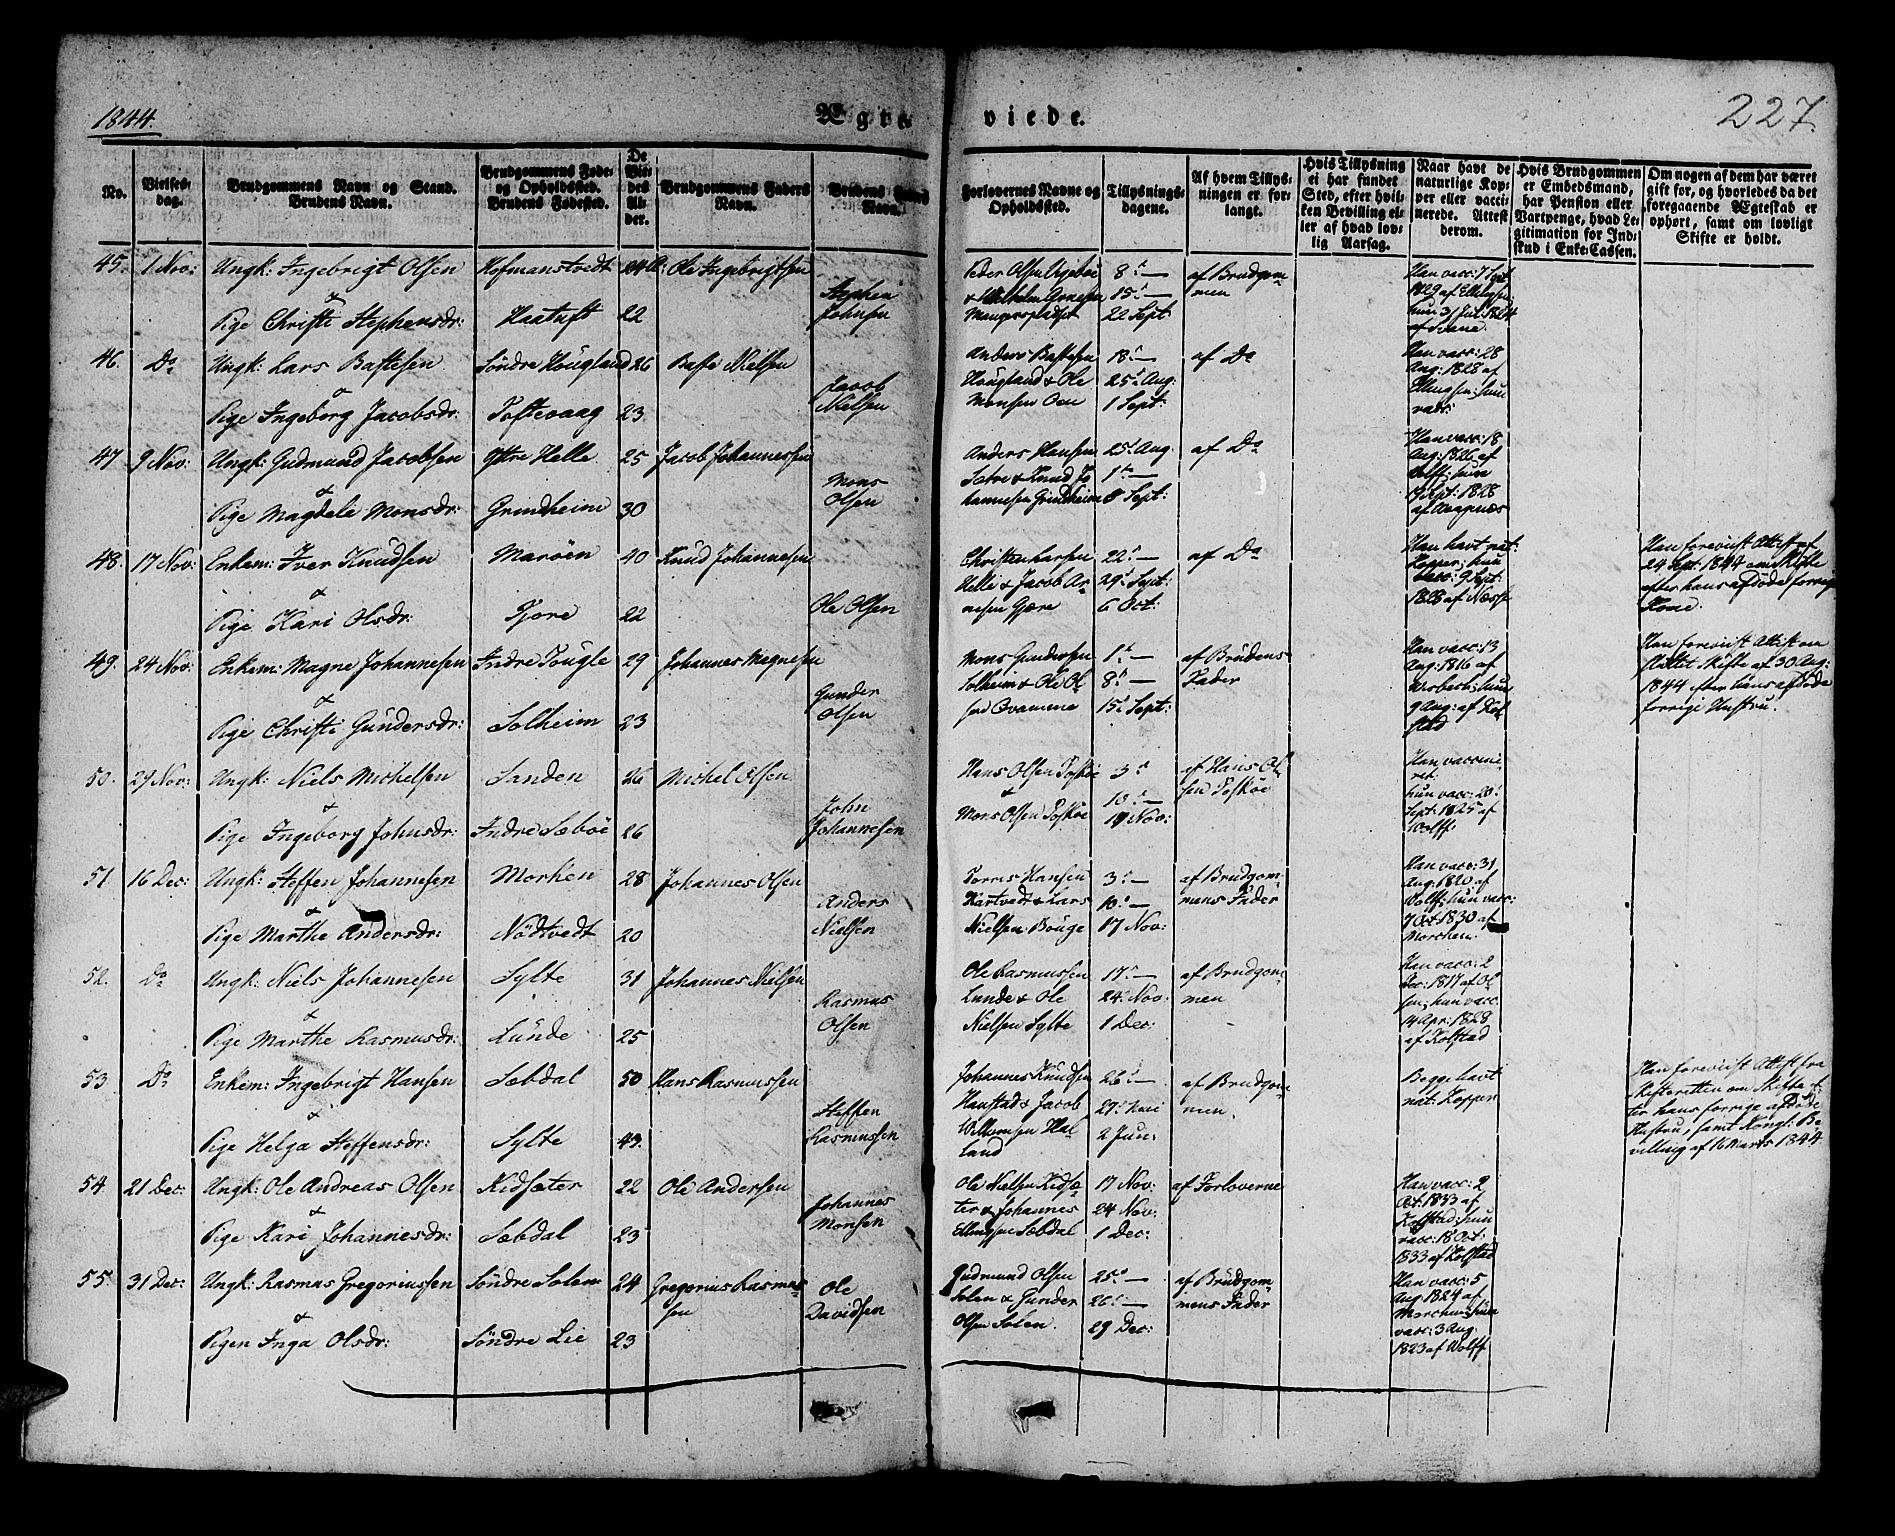 1844.
Ægte viede.
227.
No.
Vielses-dag.
Brudgommens Navn og Stand. Brudens Navn.
Brudgommens Føde- og Opholdssted. Brudens Fødested.
De Viedes Alder.
Brudgommens Faders Navn.
Brudens Faders Navn.
Forlovernes Navne og Opholdssted.
Tillysnings-dagene.
Af hvem Tillysningen er forlangt.
Hvis Tillysning ei har fundet Sted, efter hvilken Bevilling eller af hvad lovlig Aarsag.
Naar havt de naturlige Kopper eller vaccinerede. Attest derom.
Hvis Brudgommen er Embedsmand, har Pension eller Vartpenge, hvad Legitimation for Indskud i Enke-Cassen.
Om nogen af dem har været gift før, og hvorledes da det foregaaende Ægteskab er ophørt, samt om lovligt Skifte er holdt.
45. 1 Nov: Ungk: Ingebrigt Olsen Hofmanstvedt 24 Ole Ingebrigtsen
& Stephen Johnsen
Pige Christi Stephensdr: Haatuft 22
Peder Olsen 8de — af Brudgom-
& Wilhelm Arnesen 15de — men
22 Sept:
Han vacc: 7 Sept
1829 af Ellingsen
hun 31 Jul: 1824
af Svane
46. Do Ungk: Lars Bastesen Söndre Hougland 26 Baste Nielsen
& Jacob Nielsen
Pige Ingeborg Jacobsdr: Toftevaag 23
Anders Bastesen 18de — af Do
Hougland & Ole 25de Aug:
Monsen Oen 1 Sept:
Han vacc: 28
Aug: 1828 af
Ellingsen; hun
vacc:
47 9 Nov: Ungk: Gudmund Jacobsen Ytre Helle 25 Jacob Johannessen
& Mons Olsen
Pige Magdele Monsdr: Grindheim 30
Anders Hansen 25de Aug af Do
Sætre & Knud Jo 1te —
hannesen Grindheim 8 Sept:
Han vacc: 18
Aug: 1826 af
Wolff; hun
17 Sept: 1828
af
48. 17 Nov: Enkem: Iver Knudsen Maröen 40 Knud Johannesen
& Ole Olsen
Pige Kari Olsdr: Tjore 22
Christen Larsen 22de — af Do
Helle & Jacob Ar 29de Sept:
nesen Gjære 6 Oct:
Han havt nat:
Kopper; hun
vacc: 9 Sept
1828 af Næsse
Han foreviist Attest af
24 Sept: 1844 om Skifte
efter hans afdöde forrige
Kone.
49. 24 Nov: Enkem: Magne Johannesen Indre Tougle 29 Johannes Magnesen
& Gunder Olsen
Pige Christi Gundersdr: Solheim 23
Mons Gundersen 1te — af Brudens
Solheim & Ole Ol 8de — Fader
sen Ovamme 15de Sept:
Han vacc: 13
Aug: 1816 af
Wisbech; hun
9 Aug: af Kol
stad
Han foreviist Attest om
sluttet Skifte af 30 Aug:
1844 efter hans afdöde
forrige Hustru.
50. 29 Nov: Ungk: Niels Michelsen Sanden 26 Michel Olsen
& John Johannesen
Pige Ingeborg Johnsdr: Indre Sæböe 26
Hans Olsen Tosköe 3de af Hans Ol
& 10de — sen Toskøe
Mons Olsen Toskøe 19 Nov:
Han vaccine
ret.
hun vacc: 20de
Sept: 1825 af
Wolff:
51 16 Dec: Ungk: Steffen Johannesen Morken 28 Johannes Olsen
& Anders Nielsen
Pige Marthe Andersdr: Nödtvedt 20
Torris Hansen 3de — af Brudgom-
Hartvedt & Lars 10de — mens Fader
Nielsen Bouge 17 Nov:
Han vacc: 31
Aug: 1820 af
Wolff; hun vacc:
7 Oct: 1830 af
Morchen.
52. Do Ungk: Niels Johannesen Sylte 31 Johannes Nielsen
& Rasmus Olsen
Pige Marthe Rasmusdr: Lunde 25
Ole Rasmussen 17de — af Brudgom-
Lunde & Ole 24de Nov: men
Nielsen Sylte 1 Dec:
Han vacc: 2
Dec: 1817 af Ol
sen; hun vacc.
14 Apr: 1828
af Kolstad
53. Do Enkem: Ingebrigt Hansen Sæbdal 50 Hans Rasmussen
& Steffen Rasmussen
Pige Helga Steffensdr: Sylte 49.
Johannes Knudsen 26de — af Brudgom-
Hanstad & Jacob 27de Mai men.
Willumsen Hal- 2 Jun:
land
Begge havt
nat: Kopper
Han foreviist Attest fra
Skifteretten om Skifte ef
ter hans forrige afdöde
Hustru, samt Kongl: Be
villing af 16 Marts 1844.
54. 21 Dec: Ungk: Ole Andreas Olsen Kidsæter 22 Ole Andersen
& Johannes Monsen
Pige Kari Johannesdr: Sæbdal 23
Ole Nielsen Kidsæ 17 Nov: af Forloverne
ter & Johannes 24 Nov:
Ellingsen Sæbdal 1 Dec:
Han vacc: 2
Oct: 1833 af
Kolstad; hun
vacc: 18 Oct:
1833 af Kolstad
55. 31 Dec: Ungk: Rasmus Gregoriussen Söndre Solem 24 Gregorius Rasmus-
sen
& Ole Davidsen
Pigen Inga Olsdr: Söndre Lie 23
Gudmund Olsen 25de — af Brudgom
Solen & Gunder 26de — mens Fader
Olsen Solen. 29 Dec:
Han vacc: 5
Aug 1824 af
Morchen; hun
vacc: 3 Aug
1823 af Wolff